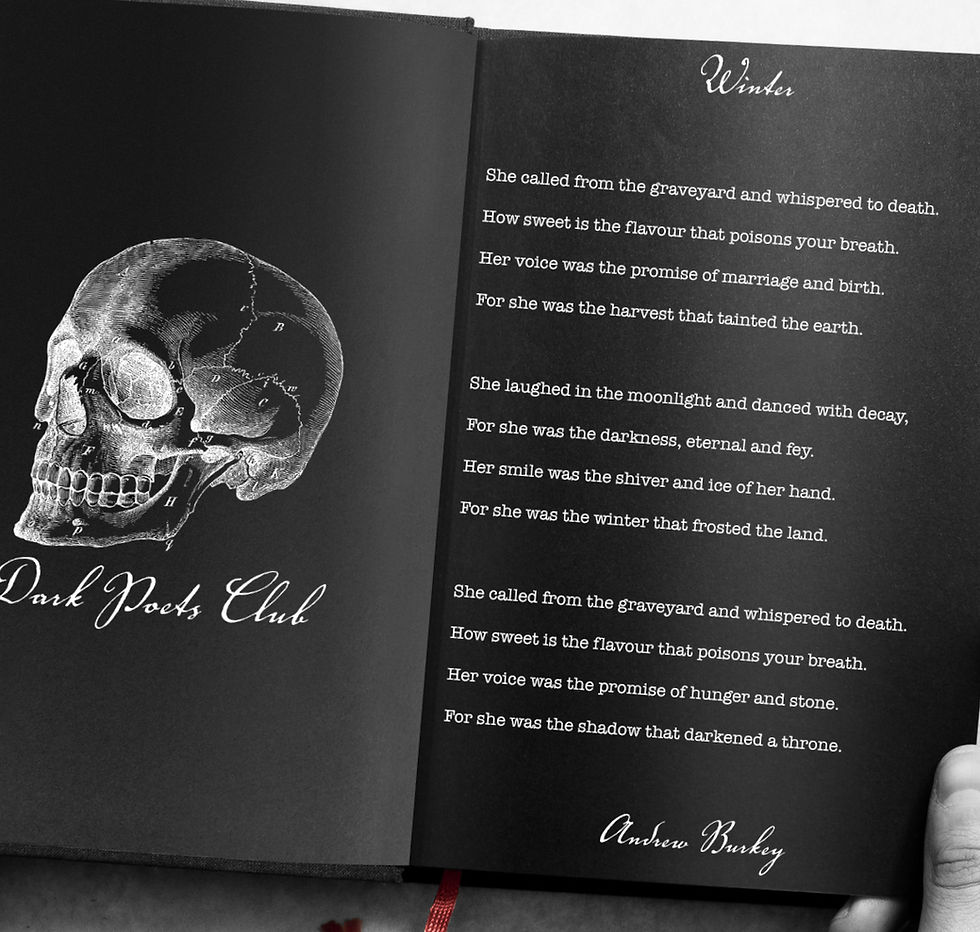 Dark Poets Club
Winter
She called from the graveyard and whispered to death.
How sweet is the flavour that poisons your breath.
Her voice was the promise of marriage and birth.
For she was the harvest that tainted the earth.
She laughed in the moonlight and danced with decay,
For she was the darkness, eternal and fey.
Her smile was the shiver and ice of her hand.
For she was the winter that frosted the land.
She called from the graveyard and whispered to death.
How sweet is the flavour that poisons your breath.
Her voice was the promise of hunger and stone.
For she was the shadow that darkened a throne.
Andrew Burkey